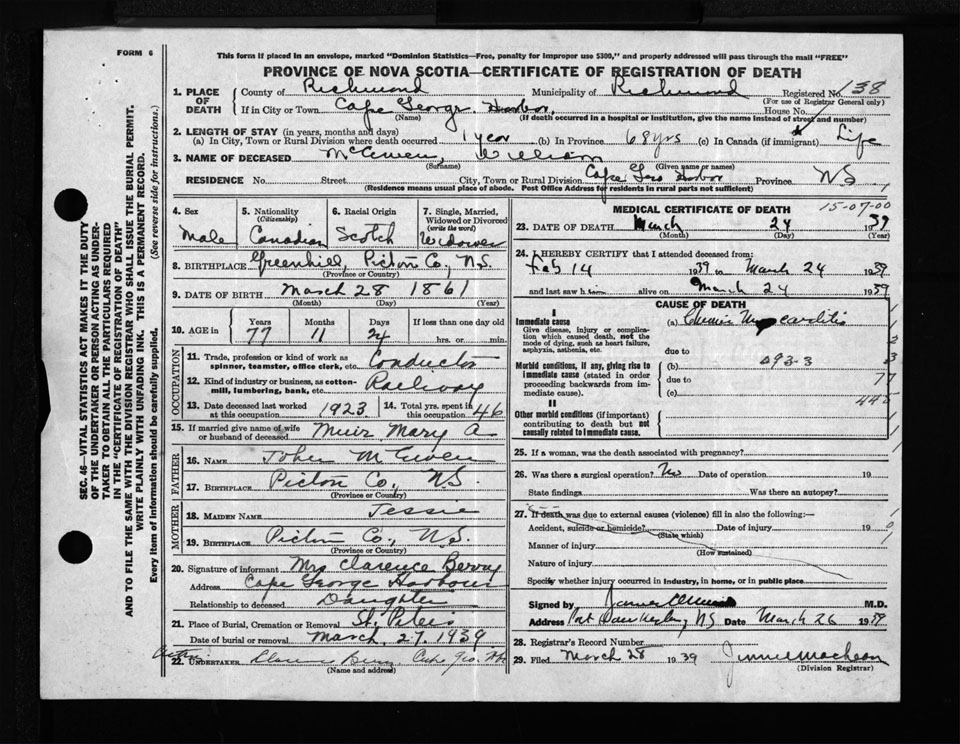 FORM 6
This form if placed in an envelope, marked "Dominion Statistics—Free, penalty for improper use $300," and properly addressed will pass through the mail "FREE"
PROVINCE OF NOVA SCOTIA—CERTIFICATE OF REGISTRATION OF DEATH
1. PLACE OF DEATH
County of Richmond Municipality of Richmond Registered No. 138
(For use of Registrar General only)
If in City or Town Cape George Harbor House No.
(Name) (If death occurred in a hospital or institution, give the name instead of street and number)
2. LENGTH OF STAY (in years, months and days)
(a) In City, Town or Rural Division where death occurred 1 year (b) In Province 68 yrs (c) In Canada (if immigrant) Life
3. NAME OF DECEASED McEwen, William
(Surname) (Given name or names)
RESIDENCE No. Street City, Town or Rural Division Cape Geo Harbor Province NS
(Residence means usual place of abode. Post Office Address for residents in rural parts not sufficient)
15-07-00
4. Sex 5. Nationality (Citizenship) 6. Racial Origin 7. Single, Married, Widowed or Divorced (write the word)
Male Canadian Scotch Widower
8. BIRTHPLACE Greenhill, Pictou Co., N.S.
(Province or Country)
9. DATE OF BIRTH March 28 1861
(Month) (Day) (Year)
10. AGE in Years Months Days If less than one day old
77 11 24 hrs. or min.
OCCUPATION
11. Trade, profession or kind of work as spinner, teamster, office clerk, etc. Conductor
12. Kind of industry or business, as cotton-mill, lumbering, bank, etc. Railway
13. Date deceased last worked at this occupation 1923 14. Total yrs. spent in this occupation 46
15. If married give name of wife or husband of deceased Muir Mary A
FATHER
16. NAME John McEwen
17. BIRTHPLACE Pictou Co., N.S.
(Province or Country)
MOTHER
18. MAIDEN NAME Jessie
19. BIRTHPLACE Pictou Co., N.S.
(Province or Country)
20. Signature of informant Mrs Clarence Berry
Address Cape George Harbour
Relationship to deceased Daughter
21. Place of Burial, Cremation or Removal St. Peters
Date of burial or removal March, 27, 1939
22. UNDERTAKER Clarence Berry Cape Geo. Hbr
(Name and address)
MEDICAL CERTIFICATE OF DEATH
23. DATE OF DEATH March 24 1939
(Month) (Day) (Year)
24. I HEREBY CERTIFY that I attended deceased from:
Feb 14 1939 to March 24 1939
and last saw him alive on March 24 1939
CAUSE OF DEATH
I
Immediate cause (a) Chronic Myocarditis
Give disease, injury or complication which caused death, not the mode of dying, such as heart failure, asphyxia, asthenia, etc.
due to
Morbid conditions, if any, giving rise to immediate cause (stated in order proceeding backwards from immediate cause)
(b) 093-3
due to 77
(c) 445
II
Other morbid conditions (if important) contributing to death but not causally related to immediate cause.
25. If a woman, was the death associated with pregnancy?
26. Was there a surgical operation? No Date of operation 19
State findings Was there an autopsy?
27. If death was due to external causes (violence) fill in also the following:—
Accident, suicide or homicide? Date of injury 19
(State which)
Manner of injury
(How sustained)
Nature of injury
Specify whether injury occurred in industry, in home, or in public place
Signed by M.D.
Address Port Hawkesbury NS Date March 26 1939
28. Registrar's Record Number
29. Filed March 28 1939
(Division Registrar)
SEC. 46—VITAL STATISTICS ACT MAKES IT THE DUTY
OF THE UNDERTAKER OR PERSON ACTING AS UNDERTAKER TO OBTAIN ALL THE PARTICULARS REQUIRED
IN THE "CERTIFICATE OF REGISTRATION OF DEATH"
AND TO FILE THE SAME WITH THE DIVISION REGISTRAR WHO SHALL ISSUE THE BURIAL PERMIT.
WRITE PLAINLY WITH UNFADING INK. THIS IS A PERMANENT RECORD.
Every item of information should be carefully supplied. (See reverse side for instructions.)